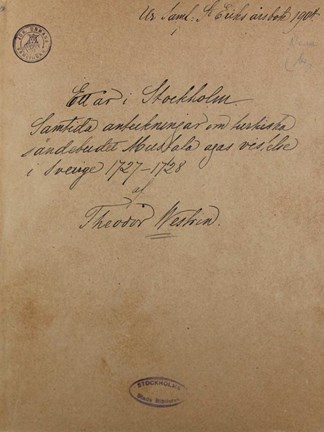 Ur Samf. S:t Eriks årsbok 1904.
Ett år i Stockholm
Samtida anteckningar om turkiska
sändebudet Mustafa agas vistelse
i Sverige 1727-1728
af
Theodor Westrin.
STOCKHOLMS
Stads Bibliotek